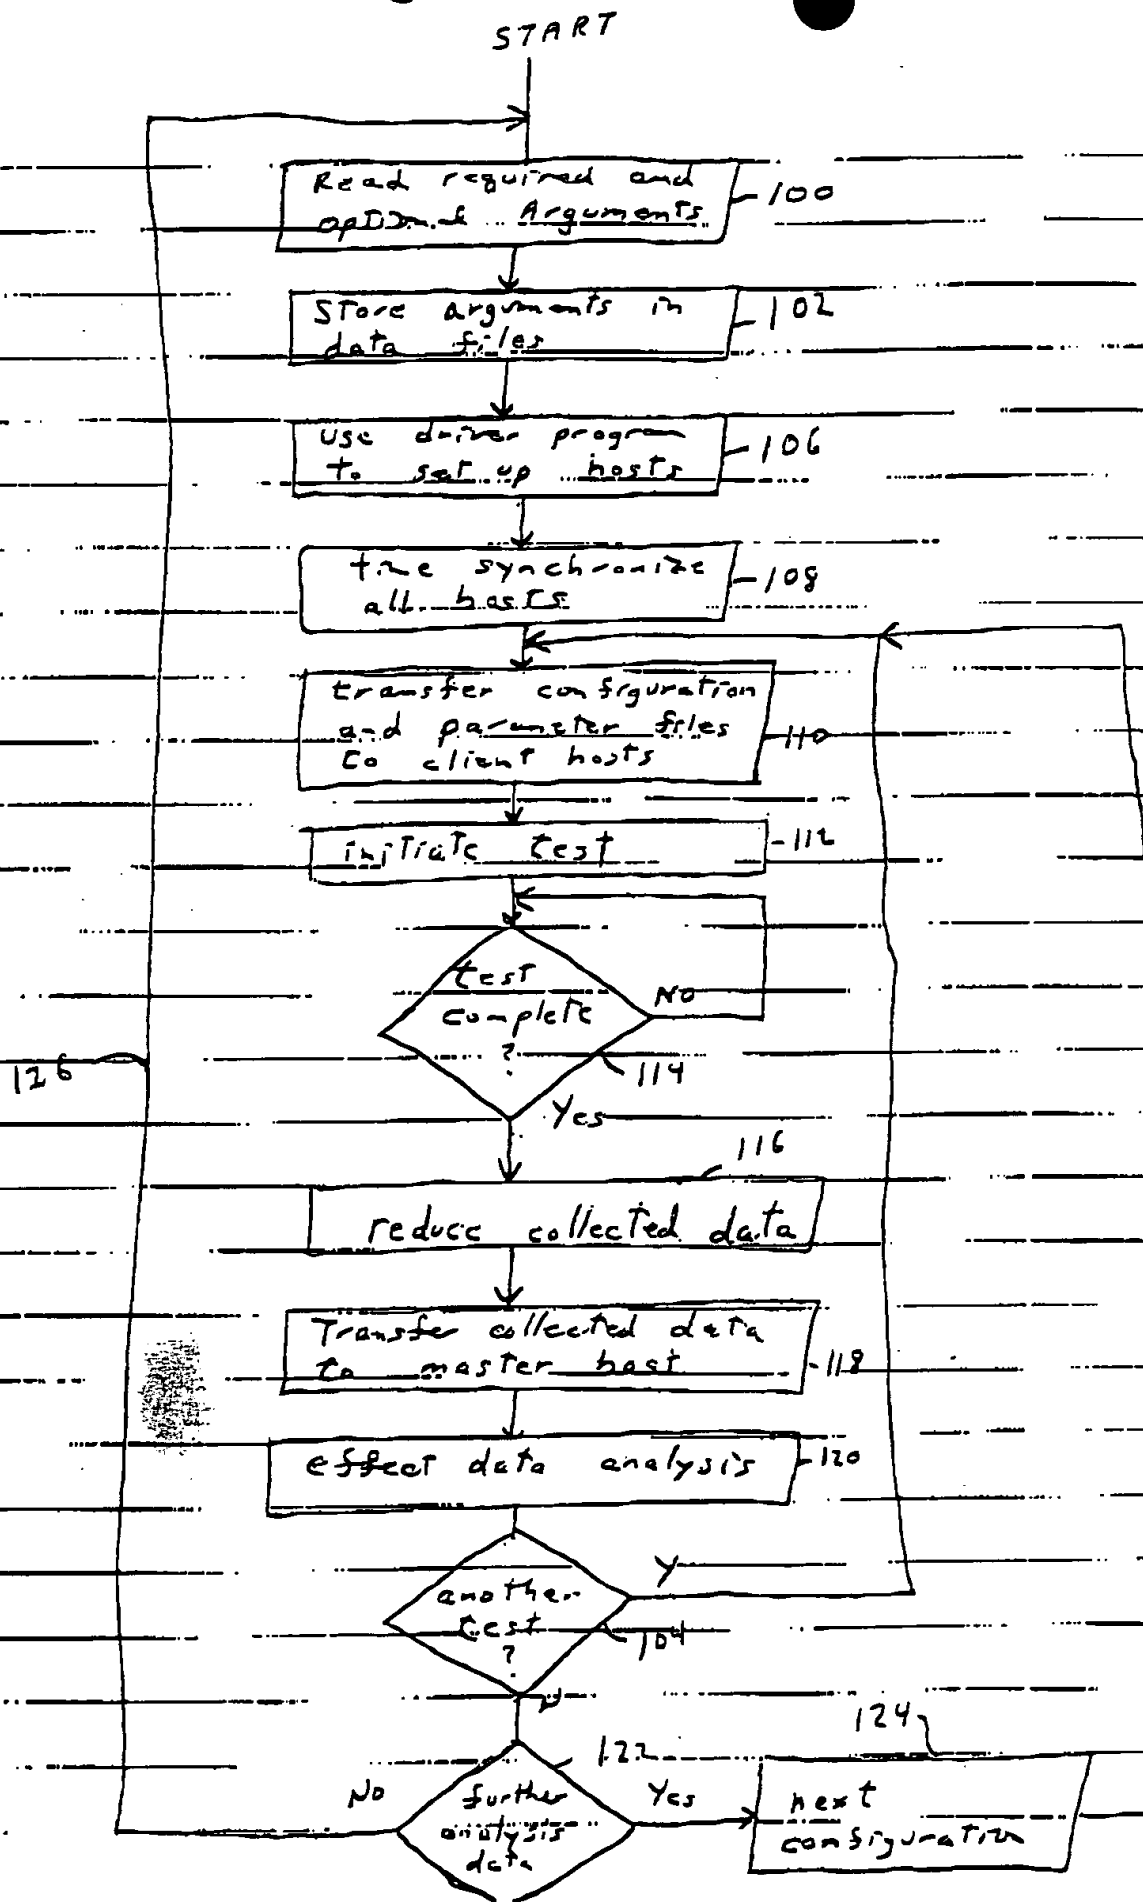 START
Read required and
optional Arguments
100
Store arguments in
data files
102
use driver program
to set up hosts
106
time synchronize
all hosts
108
transfer configuration
and parameter files
to client hosts
110
initiate test
112
test
complete
?
No
114
Yes
126
116
reduce collected data
Transfer collected data
to master host
118
effect data analysis
120
another
test
?
Y
104
N
124
122
No
further
analysis
data
Yes
next
configuration